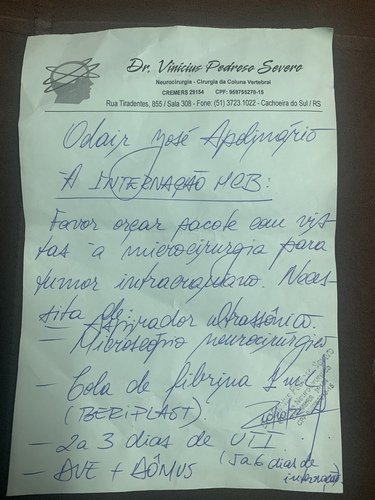 Dr. Vinicius Pedroso Severo
Neurocirurgia - Cirurgia da Coluna Vertebral
CREMERS 29154 CPF: 959755270-15
Rua Tiradentes, 855 / Sala 308 - Fone: (51) 3723.1022 - Cachoeira do Sul / RS
Odair José Apolinário
A INTERNAÇÃO HCB:
Favor orçar pacote com vis
tas à microcirurgia para
tumor intracraniano. Neces
sita de:
- Aspirador ultrassônico
- Microscópio neurocirúrgico
- Cola de fibrina 1 mL
(BERIPLAST).
- 2 a 3 dias de UTI
(5 a 6 dias de
internação)
- AVE +